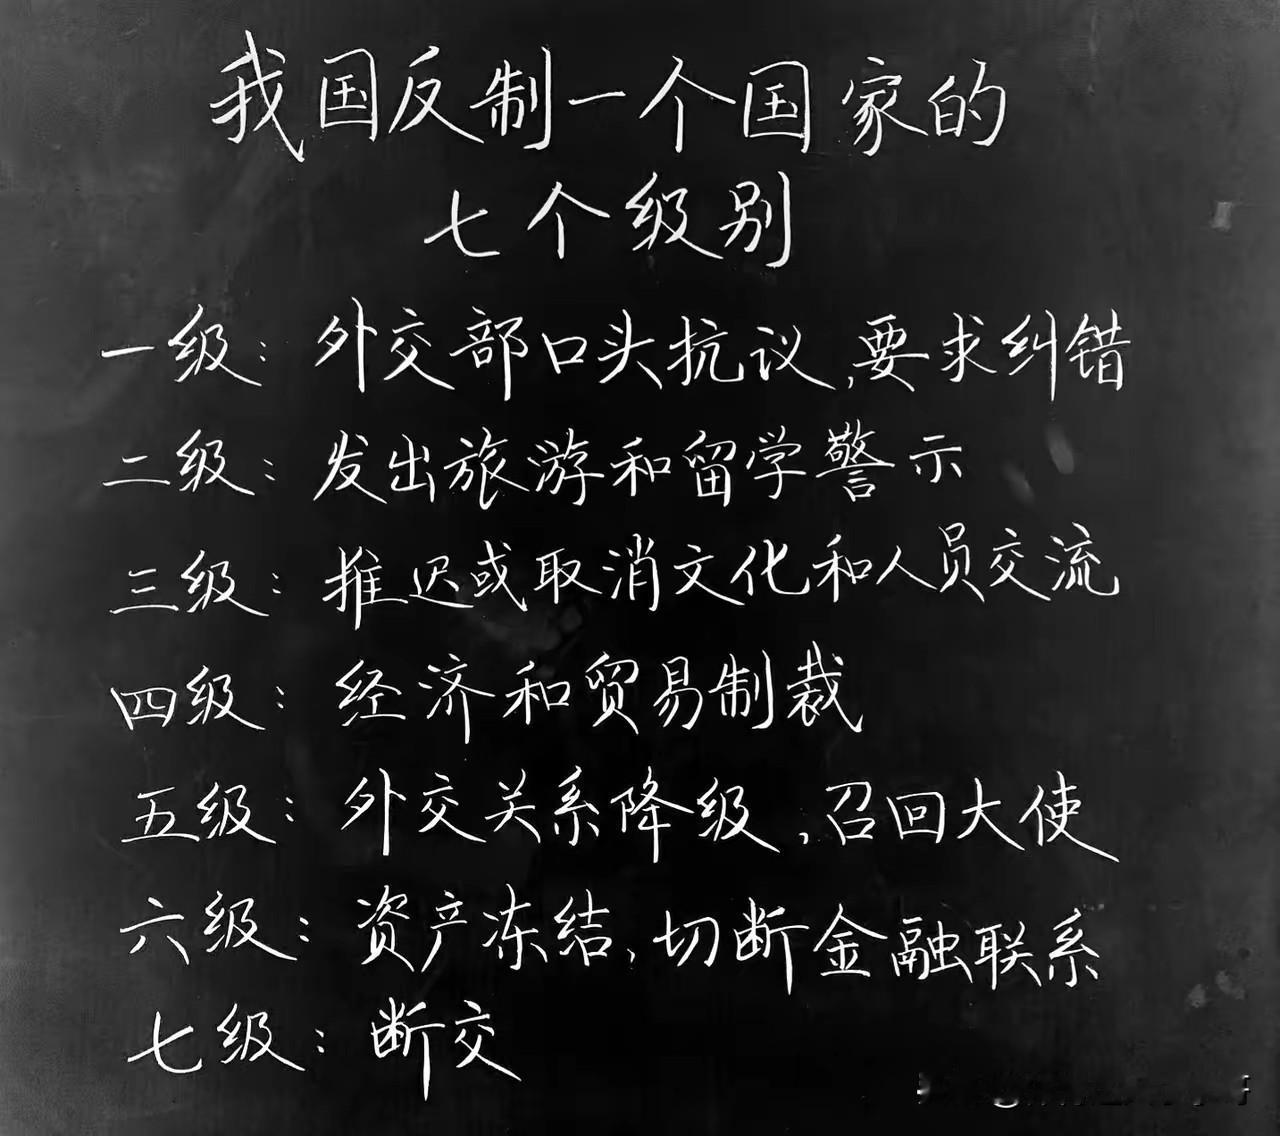 我国反制一个国家的
七个级别
一级：外交部口头抗议,要求纠错
二级：发出旅游和留学警示
三级：推迟或取消文化和人员交流
四级：经济和贸易制裁
五级：外交关系降级,召回大使
六级：资产冻结,切断金融联系
七级：断交